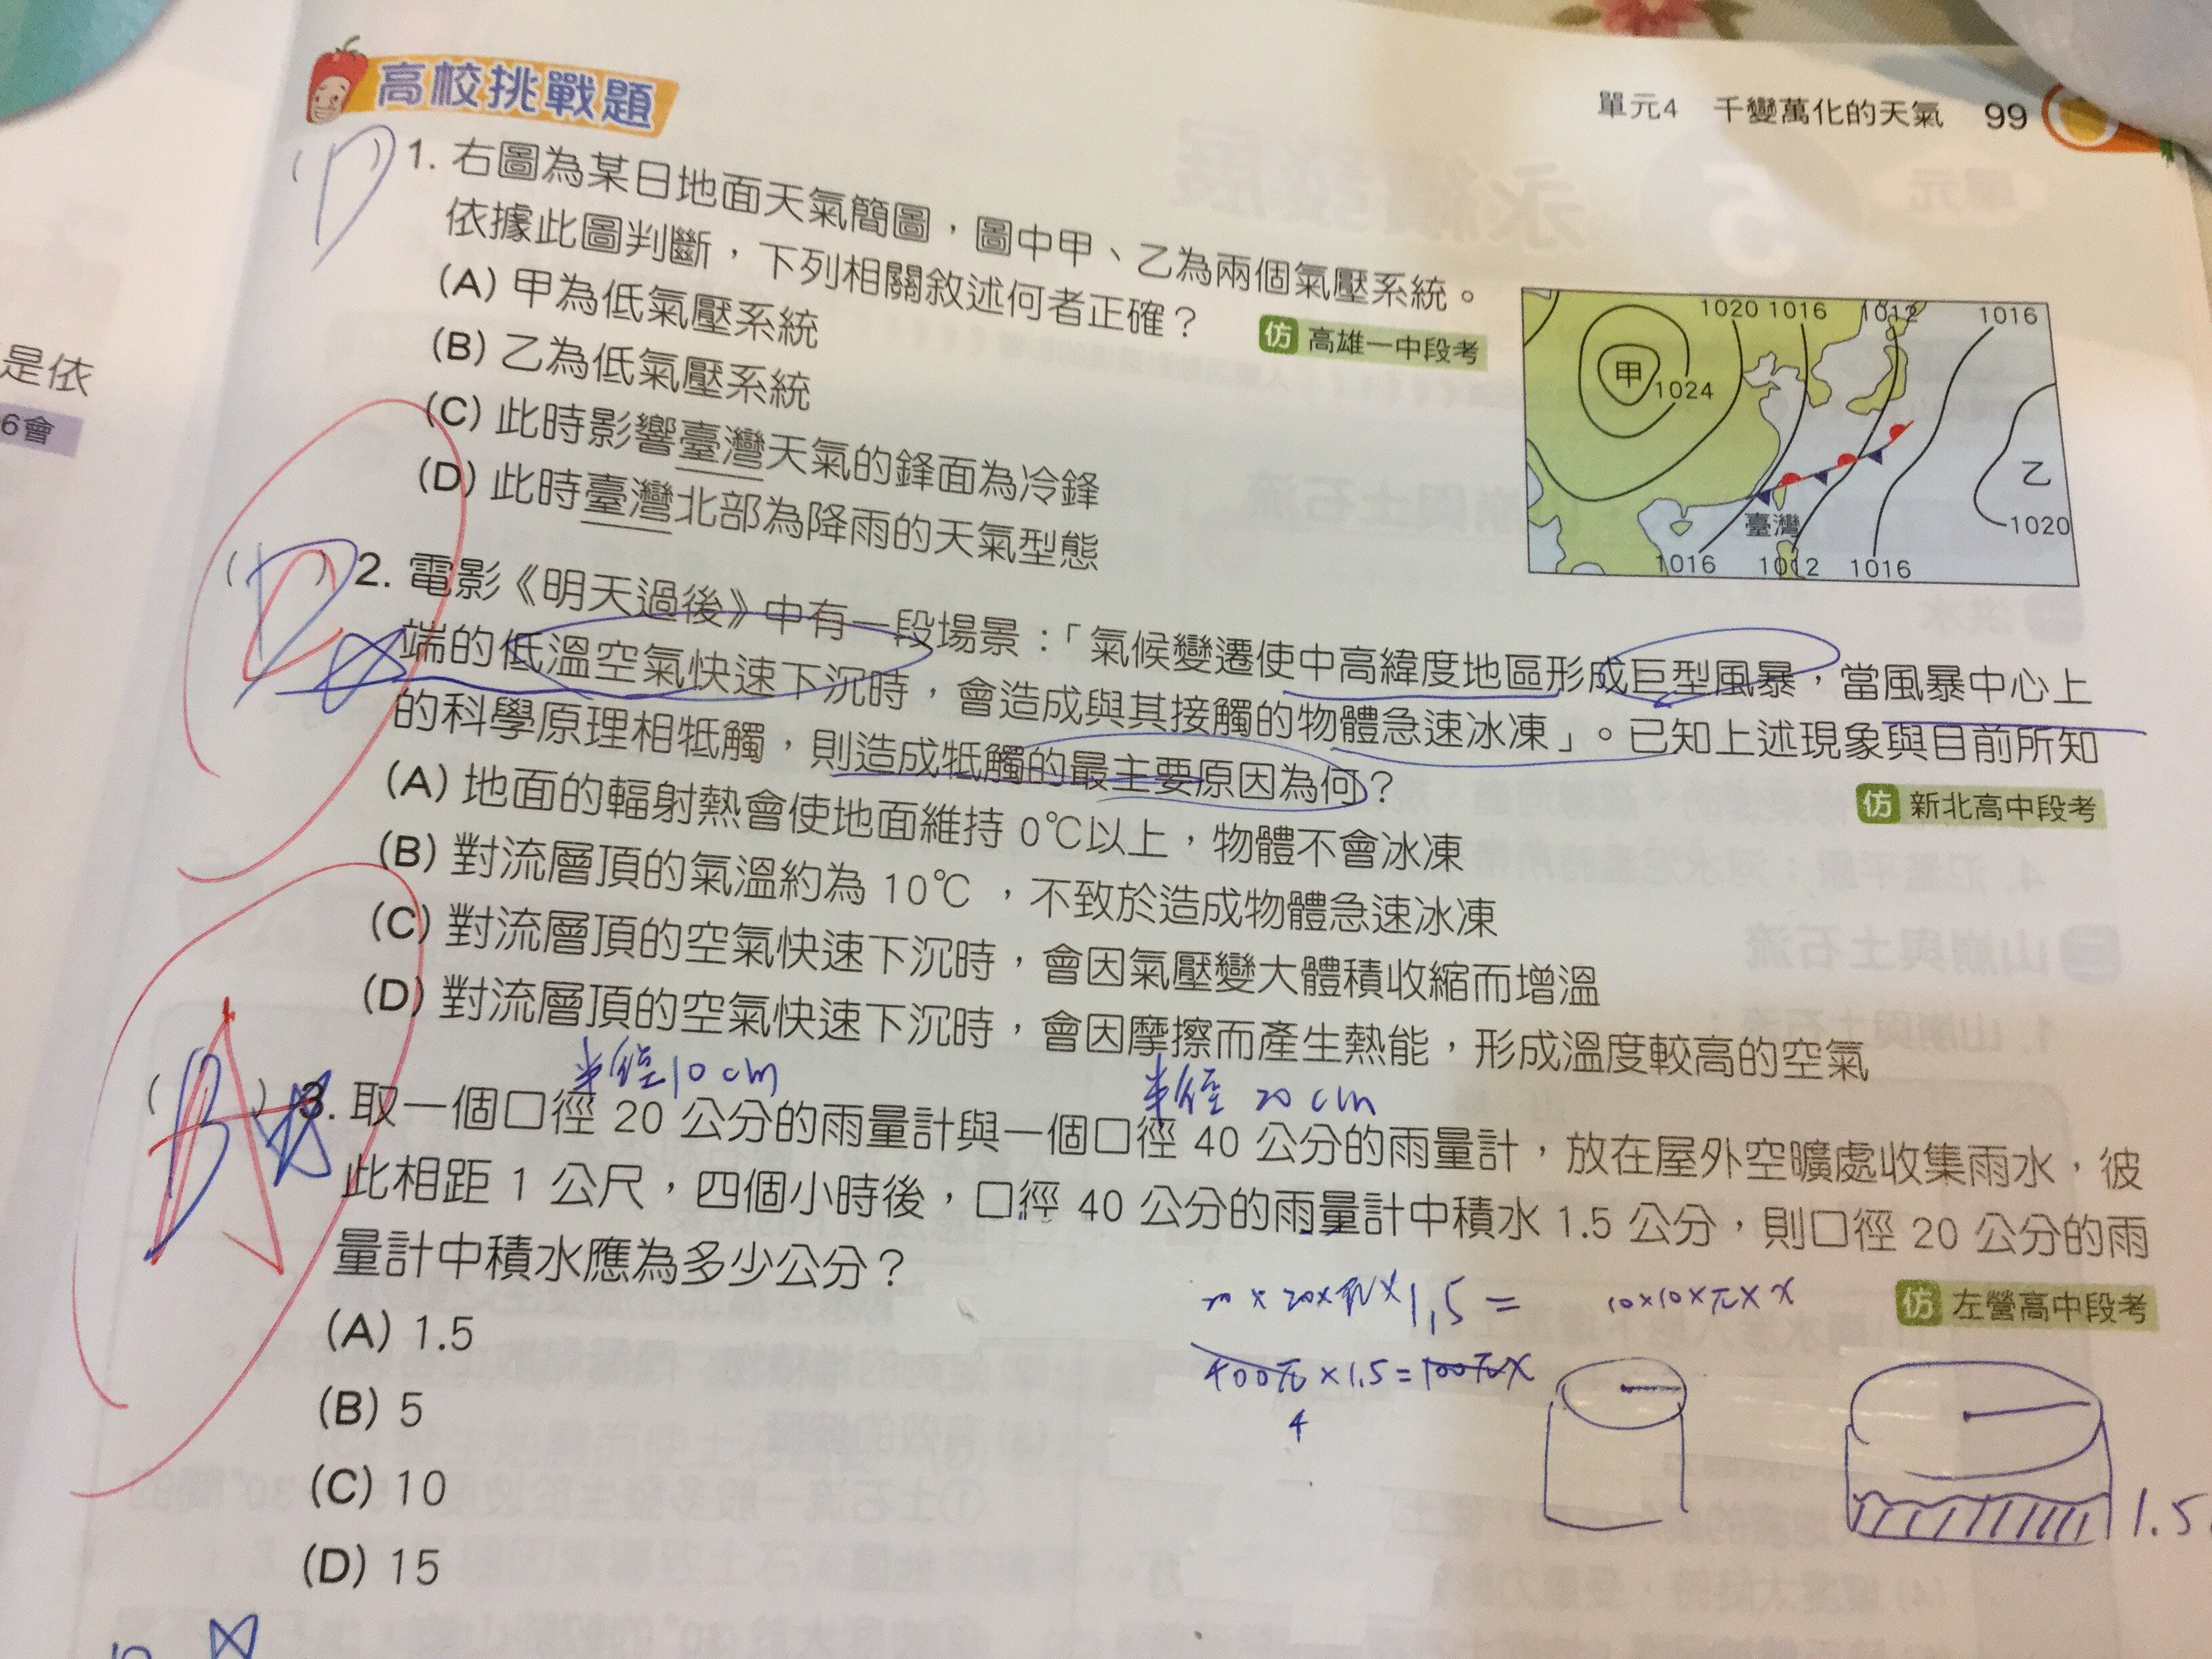 高校挑戰題
單元4 千變萬化的天氣 99
(D) 1. 右圖為某日地面天氣簡圖，圖中甲、乙為兩個氣壓系統。
依據此圖判斷，下列相關敘述何者正確？
仿 高雄一中段考
(A) 甲為低氣壓系統
(B) 乙為低氣壓系統
(C) 此時影響臺灣天氣的鋒面為冷鋒
(D) 此時臺灣北部為降雨的天氣型態
1020 1016 1012 1016
甲 1024
乙
臺灣 1020
1016 1012 1016
是依
6會
(D) 2. 電影《明天過後》中有一段場景：「氣候變遷使中高緯度地區形成巨型風暴，當風暴中心上
端的低溫空氣快速下沉時，會造成與其接觸的物體急速冰凍」。已知上述現象與目前所知
的科學原理相牴觸，則造成牴觸的最主要原因為何？
仿 新北高中段考
(A) 地面的輻射熱會使地面維持 0℃以上，物體不會冰凍
(B) 對流層頂的氣溫約為 10℃，不致於造成物體急速冰凍
(C) 對流層頂的空氣快速下沉時，會因氣壓變大體積收縮而增溫
(D) 對流層頂的空氣快速下沉時，會因摩擦而產生熱能，形成溫度較高的空氣
半徑10cm 半徑 20cm
(B) 3. 取一個口徑 20 公分的雨量計與一個口徑 40 公分的雨量計，放在屋外空曠處收集雨水，彼
此相距 1 公尺，四個小時後，口徑 40 公分的雨量計中積水 1.5 公分，則口徑 20 公分的雨
量計中積水應為多少公分？
仿 左營高中段考
(A) 1.5
(B) 5
(C) 10
(D) 15
1.5 = 10×10×π×x
400π×1.5=100πx
4
1.5